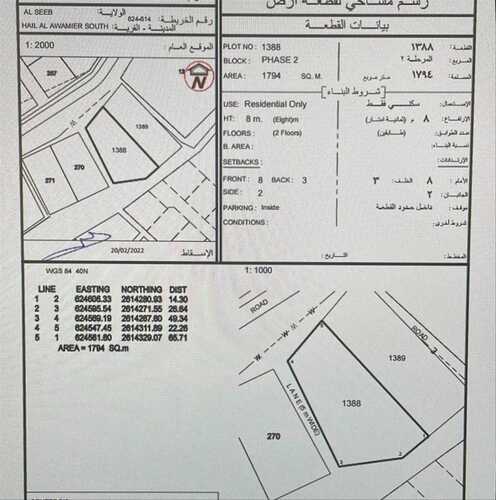 رسم مساحي لقطعة أرض
AL SEEB
الولاية:
624-614
رقم الخريطة:
HAIL AL AWAMIER SOUTH
المدينة - القرية:
1: 2000
الموقع العام:
267
13
N
1389
1388
270
271
20/02/2022
الإسقاط
بيانات القطعة
PLOT NO : 1388
القطعة: ١٣٨٨
BLOCK : PHASE 2
المربع: المرحلة ٢
AREA : 1794 SQ. M.
المساحة: ١٧٩٤ متر مربع
شروط البناء
USE: Residential Only
الإستعمال: سكني فقط
HT: 8 m. (Eight)m
الإرتفاع: ٨ م (ثمانية امتار)
FLOORS: (2 Floors)
عدد الطوابق: (طابقين)
B. AREA:
نسبة البناء:
SETBACKS:
الإرتدادات:
FRONT: 8 BACK: 3
الأمام: ٨ الخلف: ٣
SIDE : 2
الجانبان: ٢
PARKING: Inside
موقف: داخل حدود القطعة
CONDITIONS:
شروط اخرى:
المخطط:
التاريخ:
WGS 84 40N
1: 1000
LINE EASTING NORTHING DIST
1 2 624606.33 2614280.93 14.30
2 3 624595.54 2614271.55 26.64
3 4 624569.19 2614267.60 49.34
4 5 624547.45 2614311.89 22.26
5 1 624561.60 2614329.07 65.71
AREA = 1794 SQ.m
ROAD
W
W
W
ROAD
1389
1388
LANE (5 m WIDE)
270
1
2
3
4
5